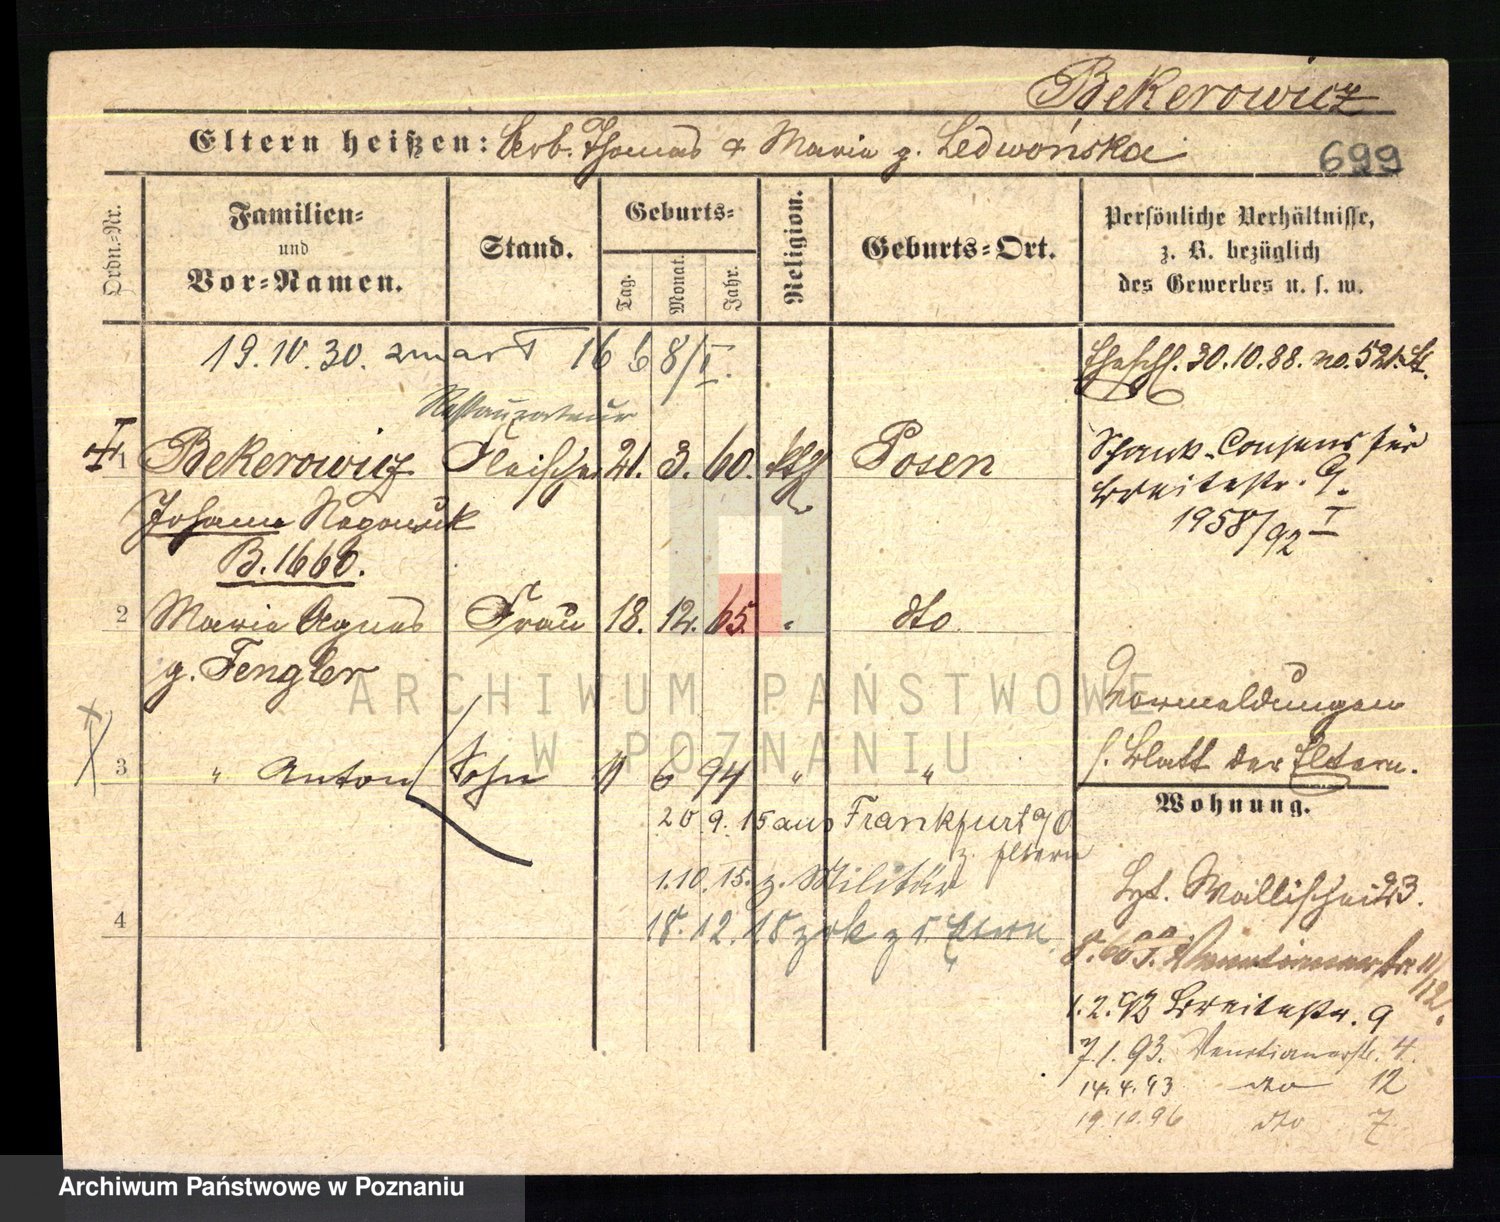 Bekerowicz
Eltern heißen: Thomas & Maria g. Ledwońska
699
Ordn.-Nr.
Familien- und Vor-Namen.
Stand.
Geburts-
Tag. Monat. Jahr.
Religion.
Geburts-Ort.
Persönliche Verhältnisse,
z. B. bezüglich
des Gewerbes u. s. w.
19.10.30. zmarł 1668/I.
30.10.88. no. 521.
Restaurateur
1 Bekerowicz Fleischer 21. 3. 60. kth Posen
Johann Nepomuk
B. 1660.
Schank-Consens für
Breitestr. 9.
1958/92 I
2 Maria Agnes Frau 18. 12. 65. " dto
g. Fengler
Vormeldungen
s. Blatt der Eltern.
3 " Anton Sohn 11 6 94 " "
Wohnung.
20 9. 15 aus Frankfurt a/O
z. Eltern
1.10.15. z. Militär
18.12.18 zrk z
4
Wallischei 23.
Venetianerstr. 11/12.
1.2.92 Breitestr. 9
7.1.93. Venetianerstr. 4.
14.4.93 dto 12
19.10.96 dto 7
ARCHIWUM PAŃSTWOWE
W POZNANIU
Archiwum Państwowe w Poznaniu